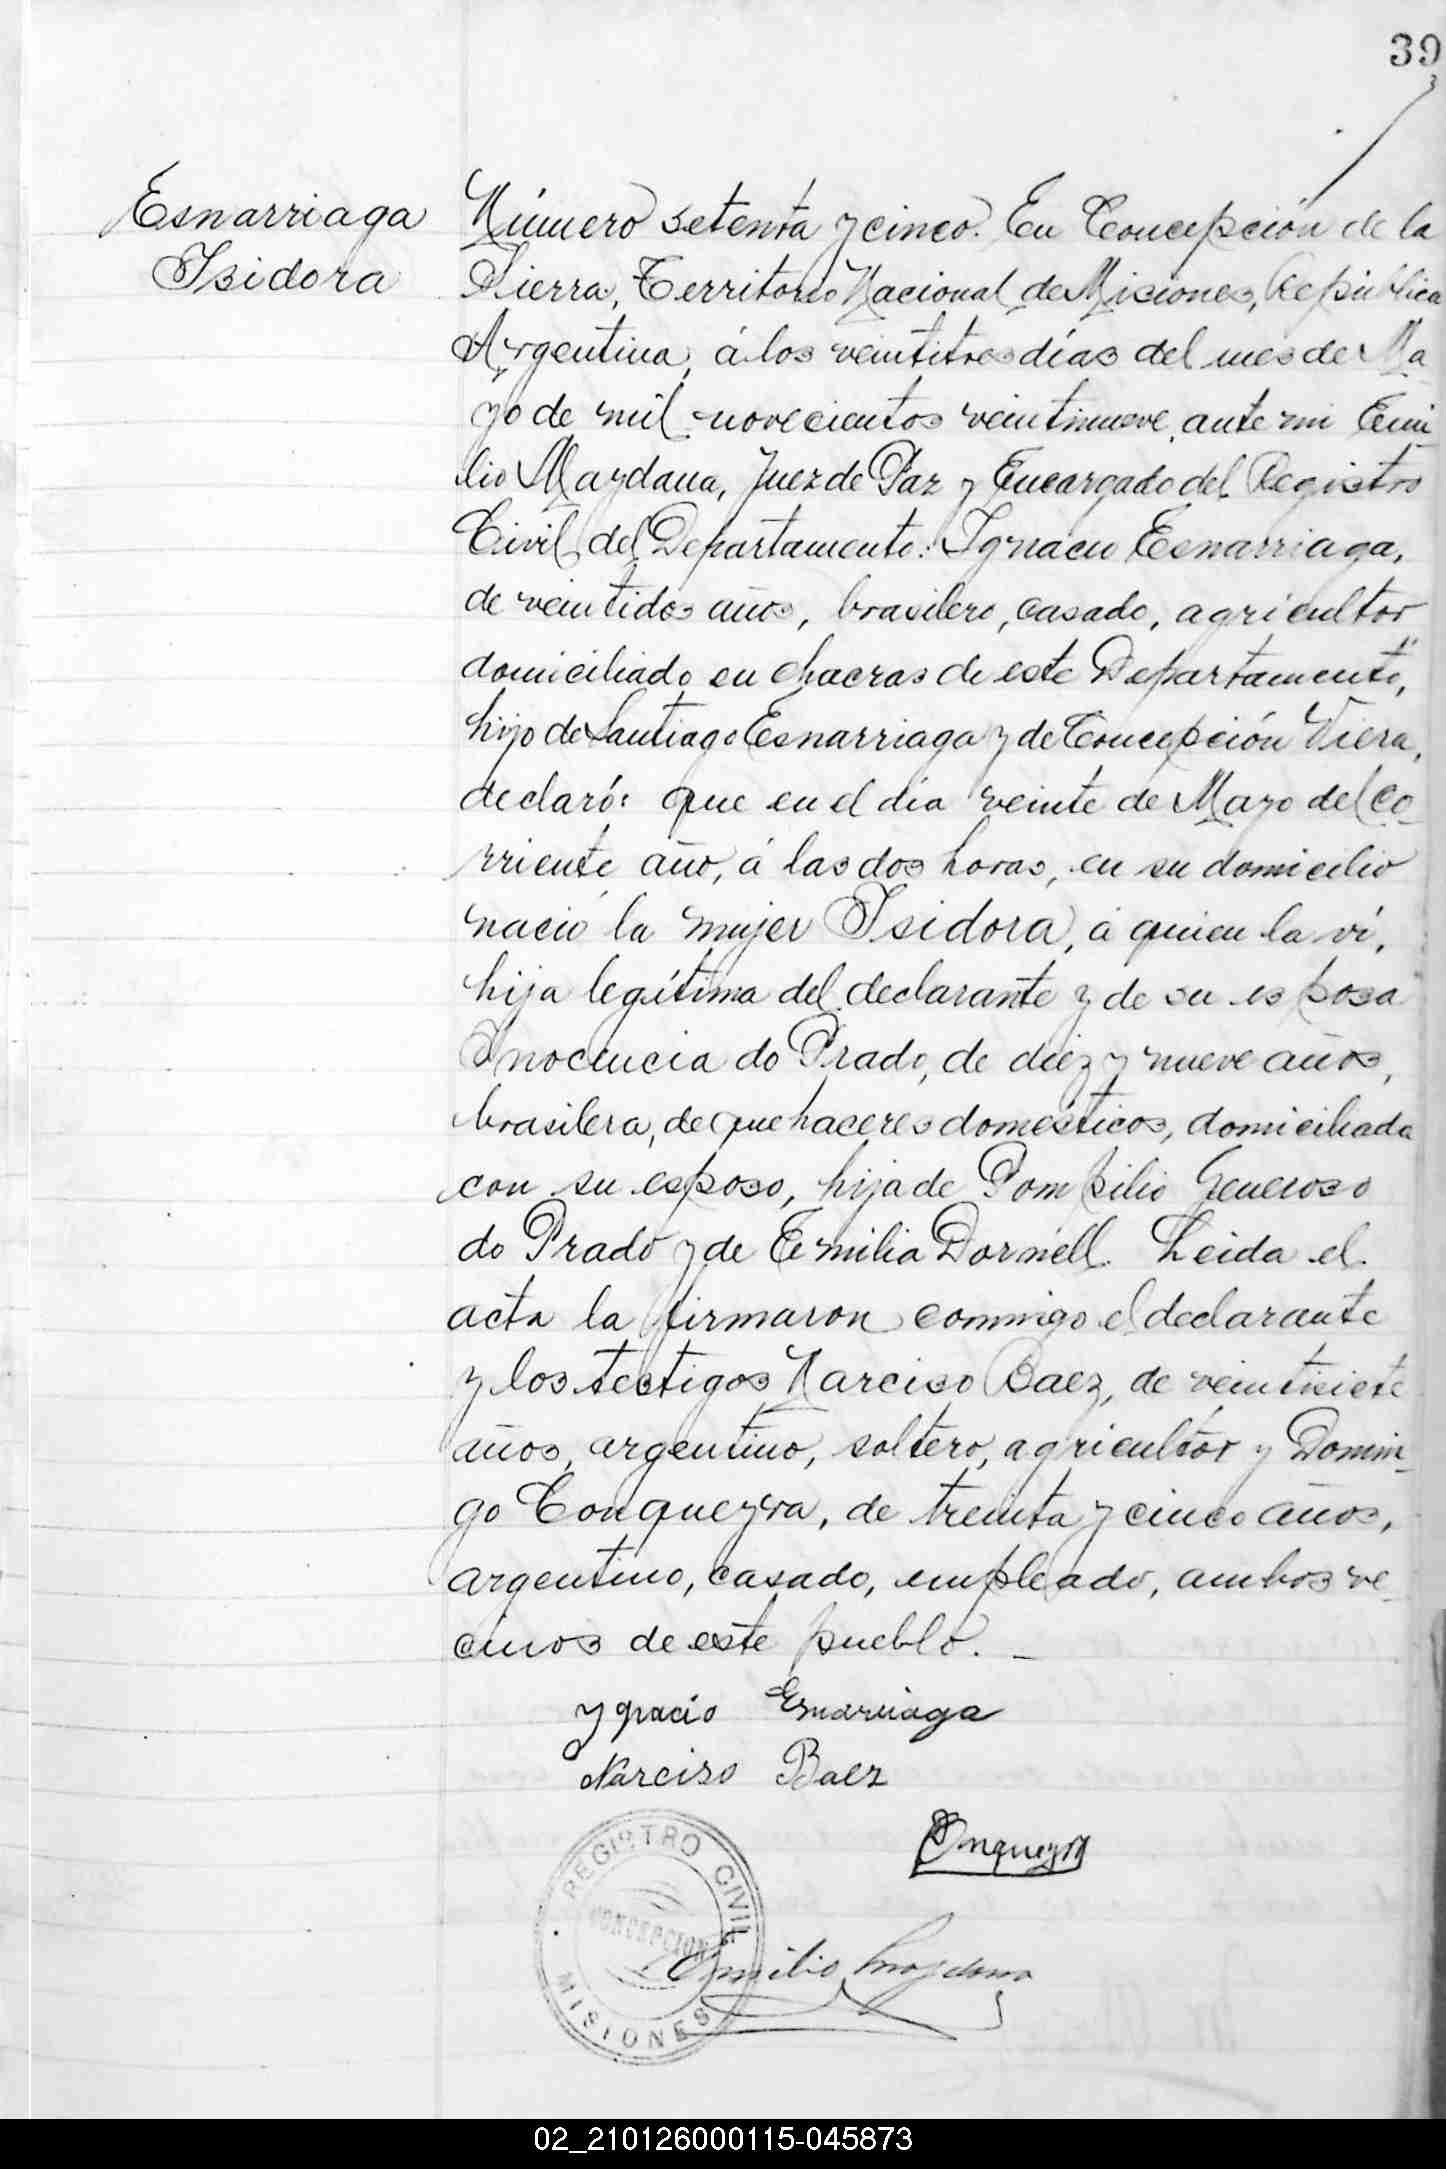 39
Esnarriaga
Isidora
Número setenta y cinco. En Concepción de la
Sierra, Territorio Nacional de Misiones, República
Argentina, á los veintitres días del mes de Ma
yo de mil novecientos veintinueve, ante mi Emi-
lio Maydana, Juez de Paz y Encargado del Registro
Civil del Departamento: Ignacio Esnarriaga,
de veintidos años, brasilero, casado, agricultor
domiciliado en chacras de este Departamento,
hijo de Santiago Esnarriaga y de Concepción Viera,
declaró: que en el día veinte de Mayo del co-
rriente año, á las dos horas, en su domicilio
nació la mujer Isidora, á quien la ví,
hija legítima del declarante y de su esposa
Inocencia do Prado, de diez y nueve años,
brasilera, de quehaceres domésticos, domiciliada
con su esposo, hija de Pompilio Generoso
do Prado y de Emilia Dornell. Leida el
acta la firmaron conmigo el declarante
y los testigos Narciso Baez, de veintisiete
años, argentino, soltero, agricultor y Domin-
go Conqueyra, de treinta y cinco años,
argentino, casado, empleado, ambos ve-
cinos de este pueblo. _
Ygnacio Esnarriaga
Narciso Baez
Conqueyra
Emilio Maydana
REGISTRO CIVIL
CONCEPCION
MISIONES
02_210126000115-045873